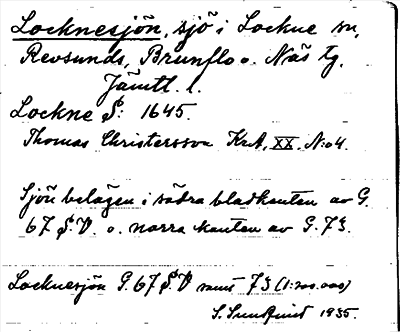 Locknesjön, sjö i Lockne sn,
Revsunds, Brunflo o. Näs tg,
Jämtl. l.
Lockne S: 1645.
Thomas Christersson KrA, XX. N:o 4.
Sjön belägen i södra bladkanten av G.
67 S.V. o. norra kanten av G. 73.
Locknesjön G. 67 S.V samt 73 (1:200.000)
S. Sundqvist 1935.